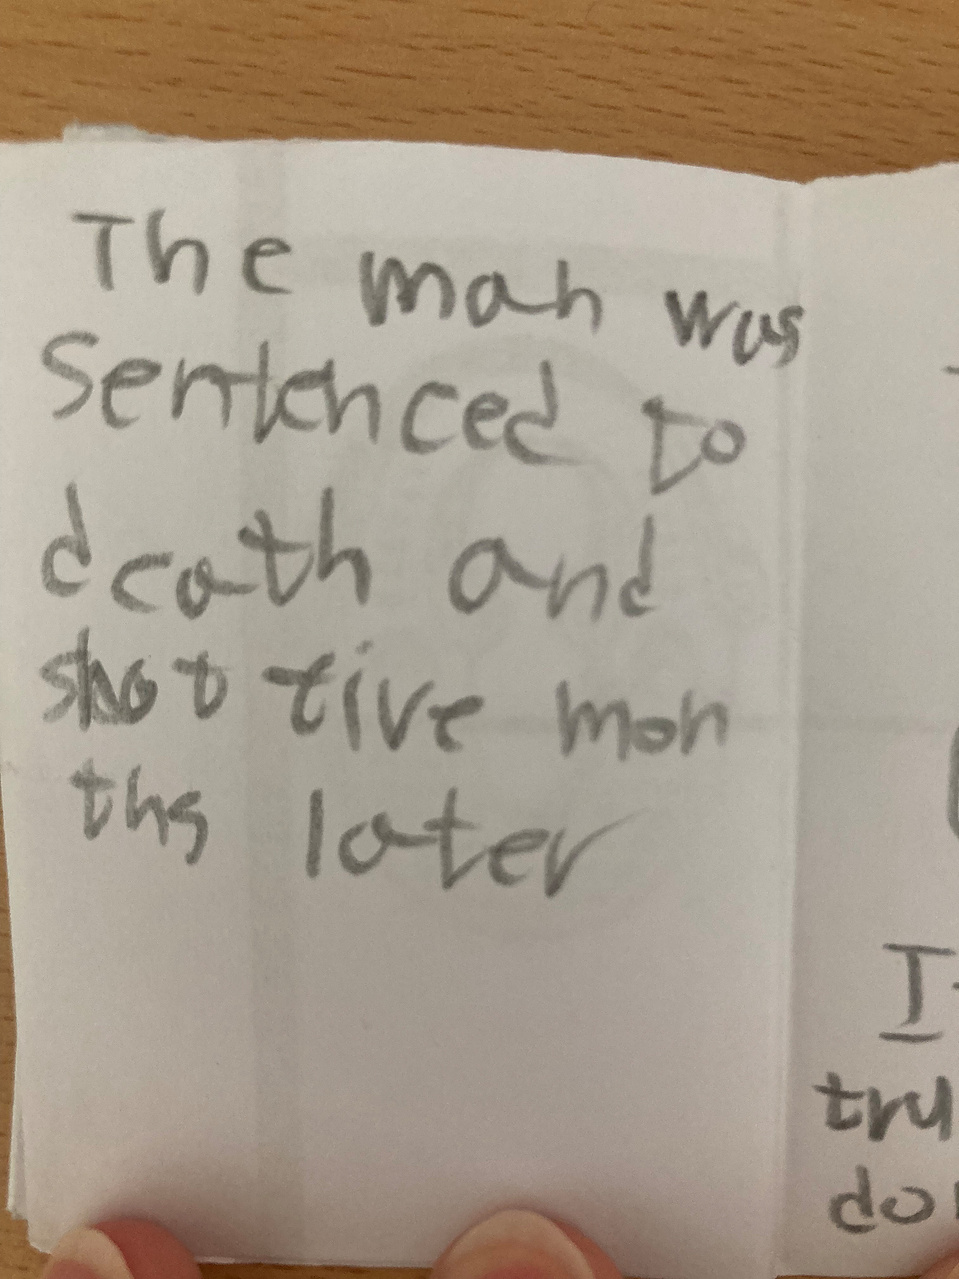 The man was
Sentenced to
death and
shot five mon
ths later
I
tru
do